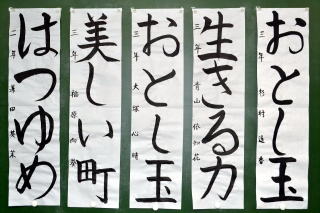 おとし玉
三年 杉村遥香
生きる力
三年 青山依知花
おとし玉
三年 大塚心晴
美しい町
三年
はつゆめ
二年 澤田英茉